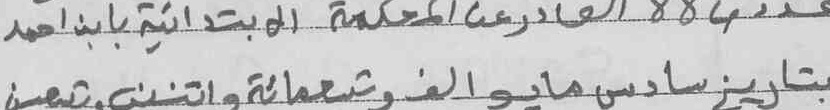 الصادر عن المحكمة الابتدائية بابن احمد
بتاريخ سادس مايو الف وتسعمائة واثنين وتسعين